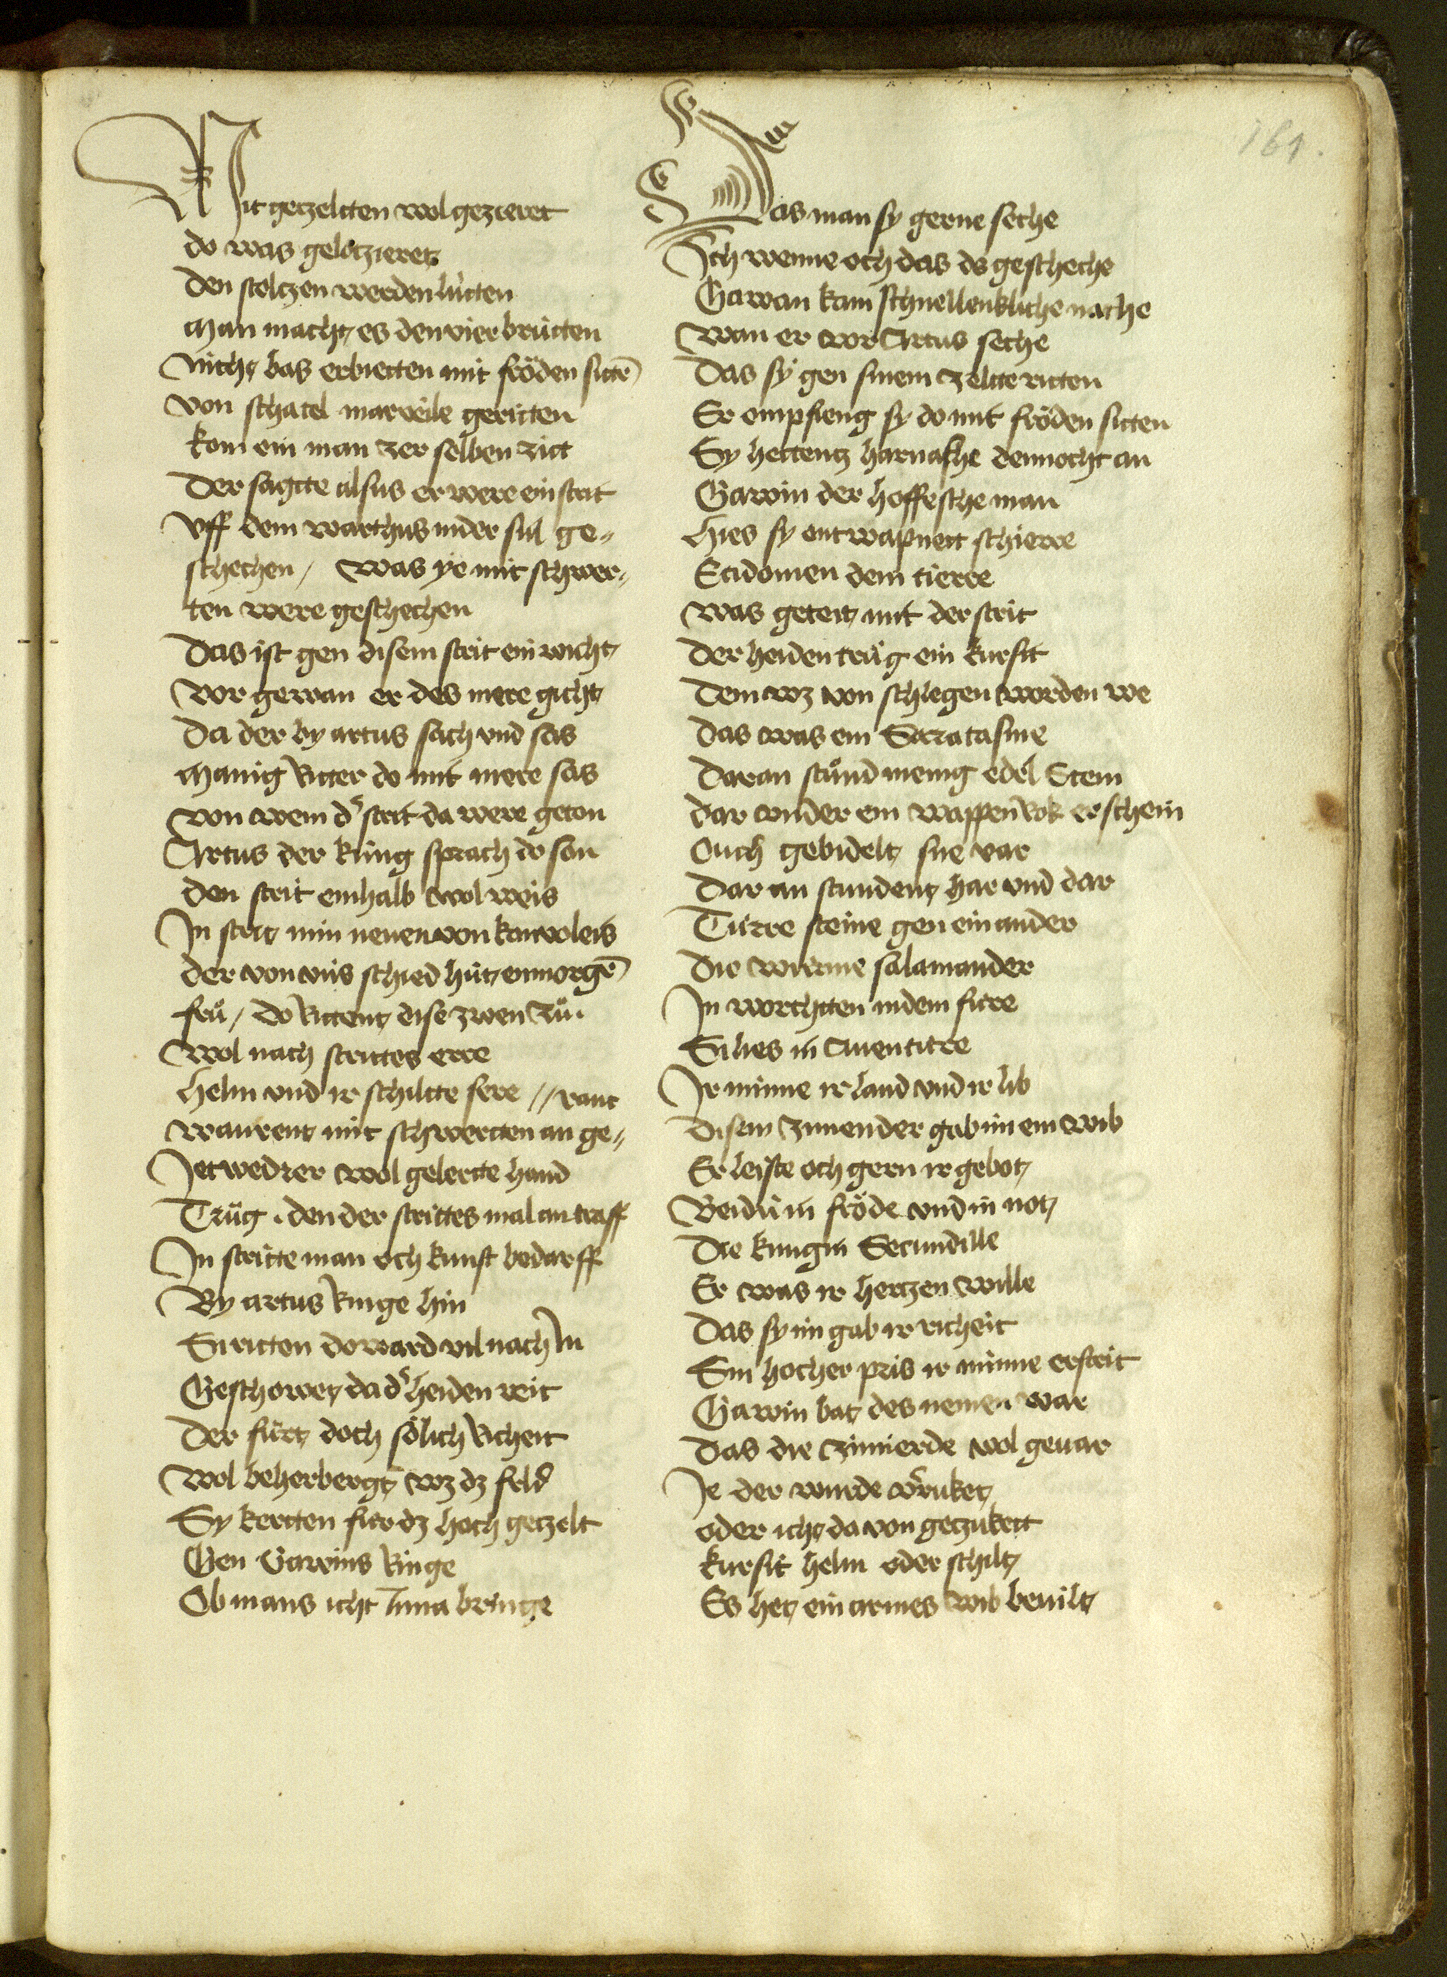 161.
Mit getzeltten wol gezieret
do was gelotzieret
den stoltzen werden lùtten
man macht es den vier brùtten
nicht bas erbietten mit fröden sittē
von schatel marveile geritten
kom ein man zer selben zitt
Der sagtte alsus er were ein strit
vff dem warthus in der sul ge„
schechen / was ye mit schwer„
ten were geschechen
Das ist gen disem strit ein wicht
vor gewan er des mere gicht
Da der by artus sach vnd sas
manig ritter do mit mere sas
von wem ds strit da were geton
Artus der kùng sprach do san
den strit einhalb wol weis
In streit min neuen von kanvoleis
der von vns schied hùt en morgē
frů / do rittent dise zwen zů
wol nach strittes erre
helm vnd ir schiltte sere // rant
warent mit schwertten an ge„
Jetwedrer wol gelertte hand
Trůg . den der strittes mal an traff
In stritte man och kunst bedarff
By artus ringe hin
Si ritten do ward vil nach In
Geschowet da ds heiden reit
Der fùrt doch sölich richeit
wol beherbergt wz dz feld
Sy kertten fùr dz hoch getzelt
Gen Gawins ringe
Ob mans icht Inna bringe
Das man sy gerne seche
Ich wenne och das ds gescheche
Gawan kam schnellenkliche nache
wan er vor Artus seche
Das sy gen sinem zeltte ritten
Er empfieng sy do mit fröden sitten
Sy hettent harnasche dennocht an
Gawin der hoffesche man
hies sy entwapnett schierre
Ecidomen dem tierre
was geteilt mit der strit
der heiden trůg ein kursit
dem wz von schlegen worden we
das was ein Saratasme
daran stůnd menig edel Stein
dar vnder ein wappenrok erschein
Ouch gebidelt sne var
Dar an stundent har vnd dar
Tùrre steine gen ein ander
die wùrme salamander
In worchtten in dem fùre
Si lies in Auentùre
Ir minne ir land vnd ir lib
Disem zimender gab im ein wib
Er leiste och gern ir gebot
Beidù in fröde vnd in not
Die kungin Secundille
Er was ir hertzen wille
das sy im gab ir richeit
Sin hocher pris ir minne erstreit
Gawin bat des nemen war
das die zimierde wol gevar
Je der wurde vsrùket
oder icht da von getzukett
kursit helm oder schilt
Es het ein armes wib bevilt